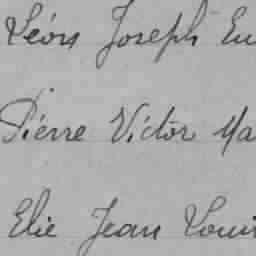 Léon Joseph Eu
Pierre Victor Ma
Elie Jean Loui